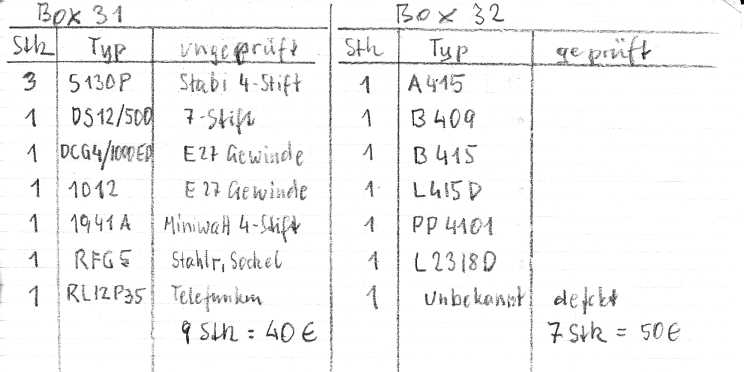 Box 31
Stk Typ ungeprüft
3 5130P Stabi 4-Stift
1 DS12/500 7-Stift
1 DCG4/1000ED E27 Gewinde
1 1012 E27 Gewinde
1 1941A Miniwatt 4-Stift
1 RFG5 Stahlr, Sockel
1 RL12P35 Telefunken
9 Stk = 40€
Box 32
Stk Typ geprüft
1 A415
1 B409
1 B415
1 L415D
1 PP4101
1 L2318D
1 Unbekannt defekt
7 Stk = 50€